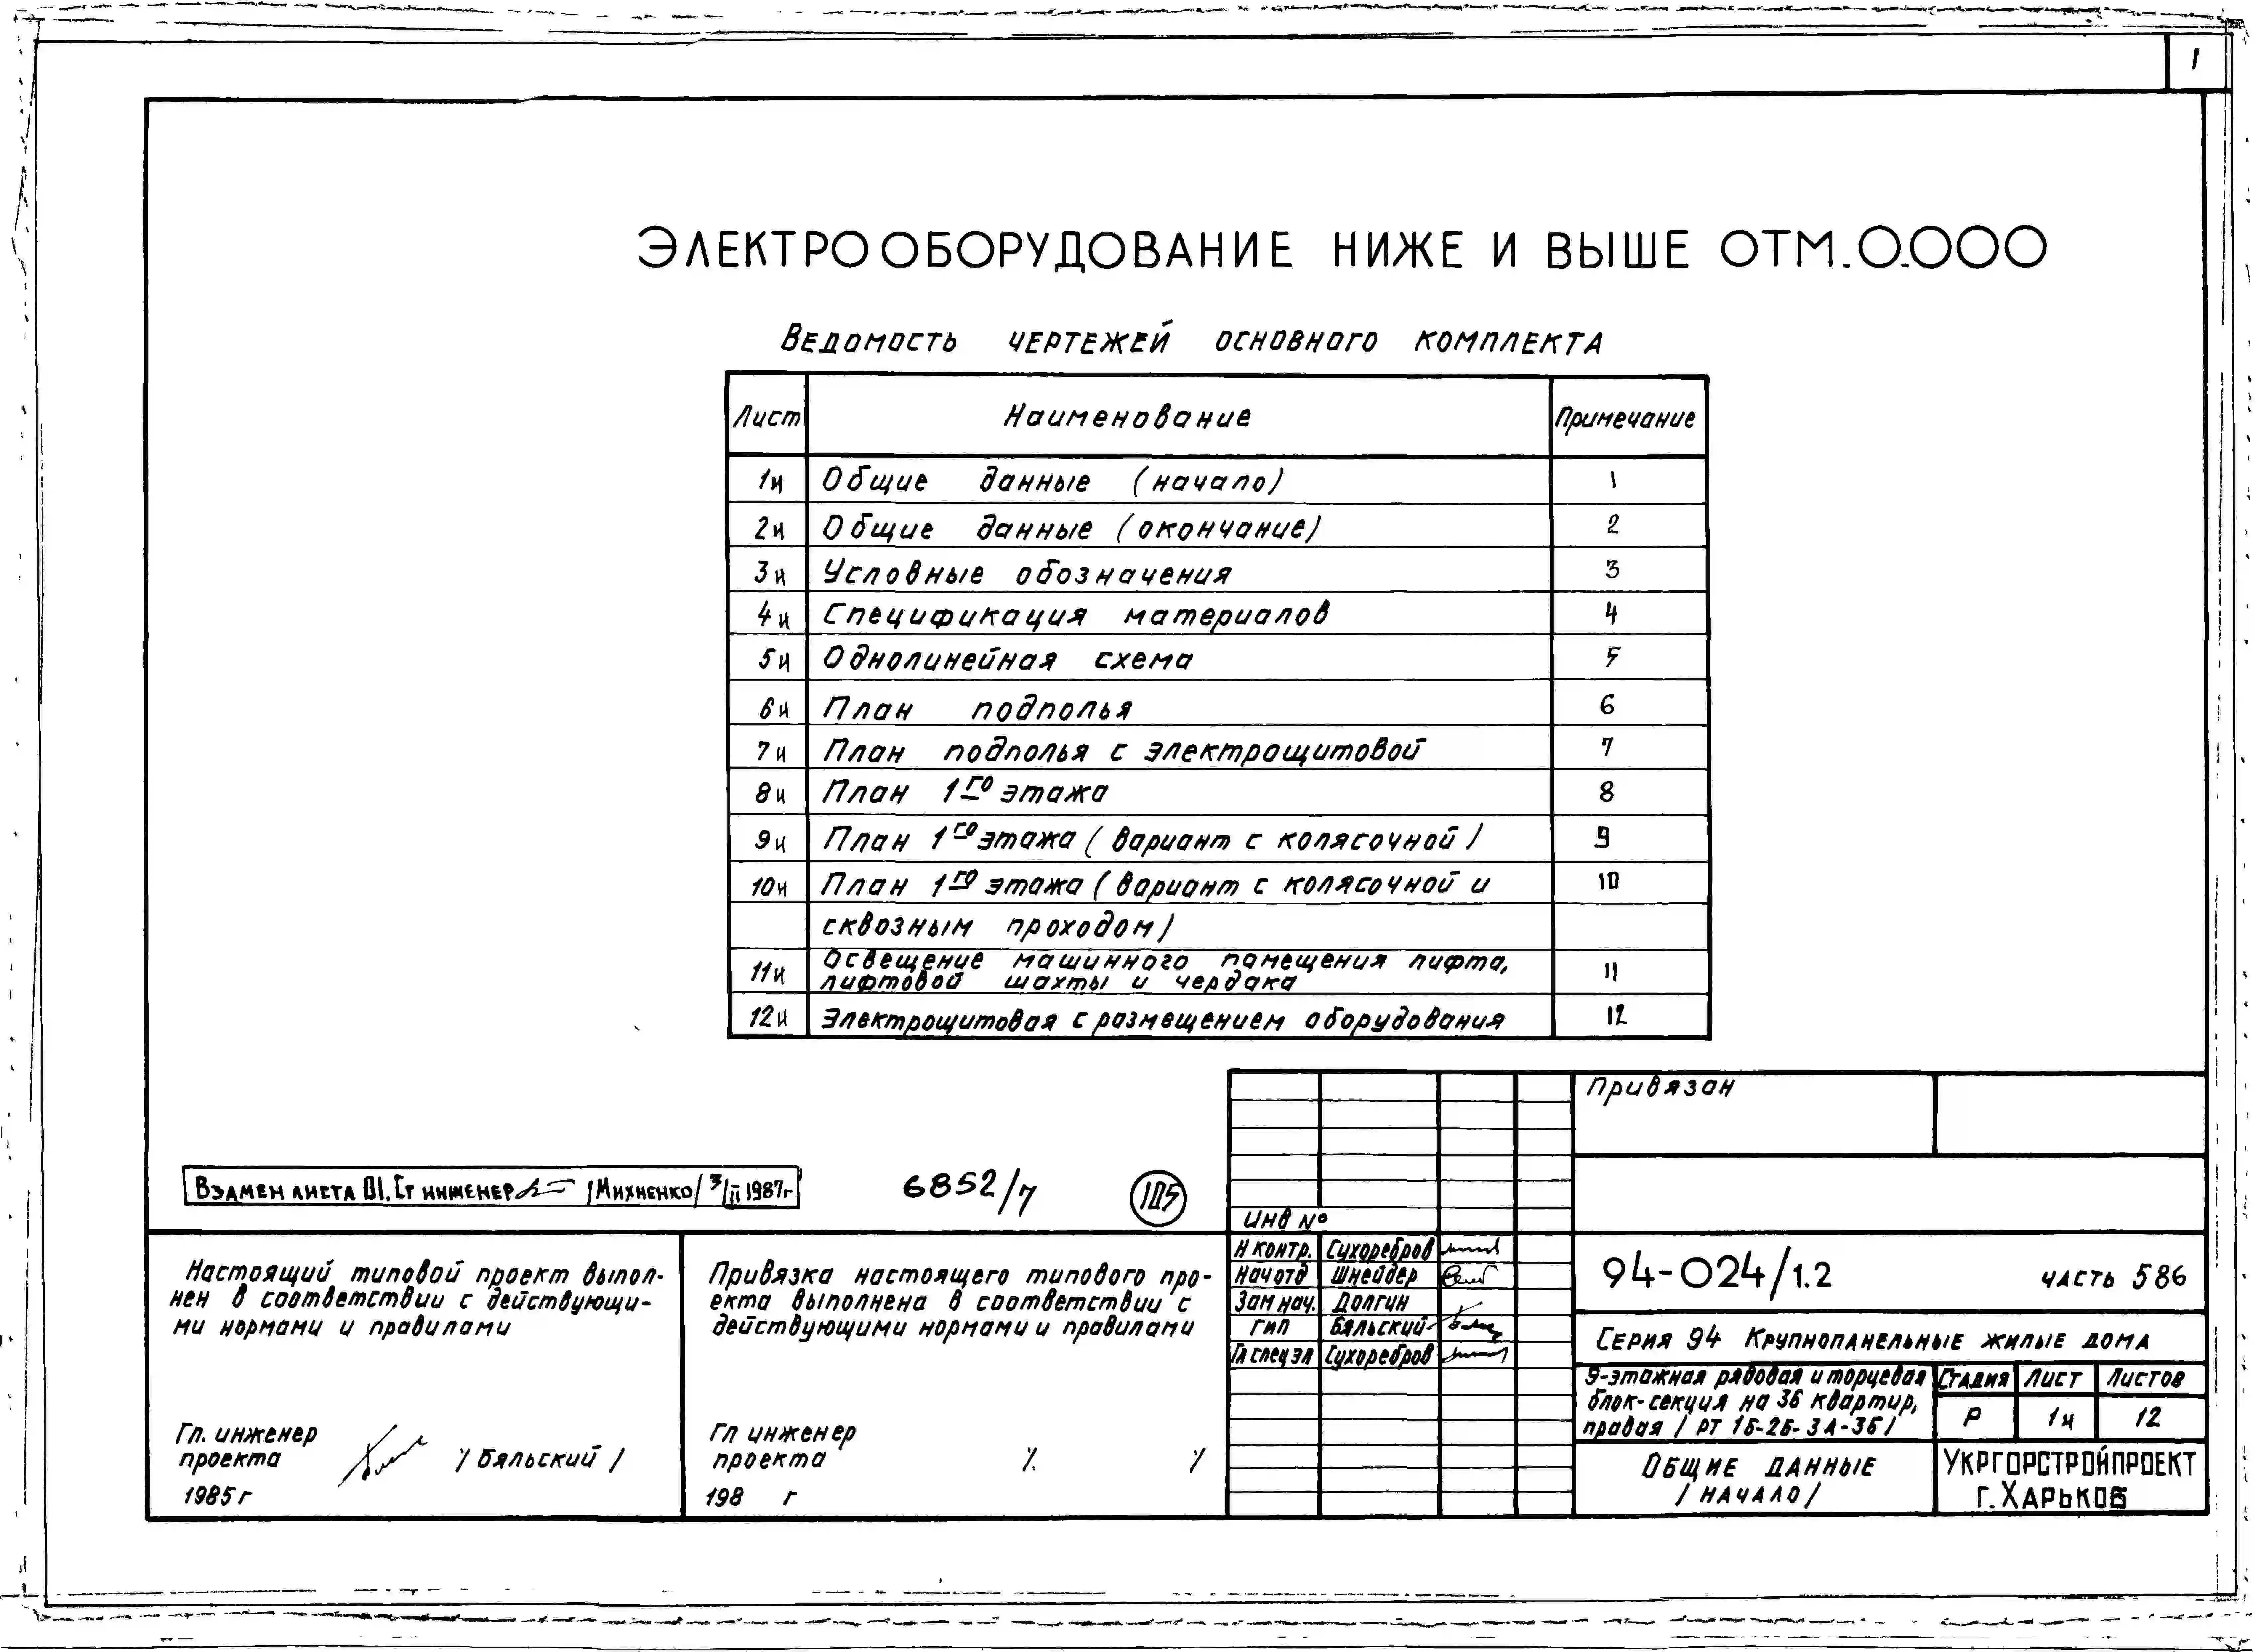 1
ЭЛЕКТРООБОРУДОВАНИЕ НИЖЕ И ВЫШЕ ОТМ. 0.000
ВЕДОМОСТЬ ЧЕРТЕЖЕЙ ОСНОВНОГО КОМПЛЕКТА
Лист Наименование Примечание
1и Общие данные (начало) 1
2и Общие данные (окончание) 2
3и Условные обозначения 3
4и Спецификация материалов 4
5и Однолинейная схема 5
6и План подполья 6
7и План подполья с электрощитовой 7
8и План 1го этажа 8
9и План 1го этажа (вариант с колясочной) 9
10и План 1го этажа (вариант с колясочной и 10
сквозным проходом)
11и Освещение машинного помещения лифта, 11
лифтовой шахты и чердака
12и Электрощитовая с размещением оборудования 12
Привязан
Взамен листа 01. Ст инженер /Михненко/ 3/II 1987г
6852/7
105
Инв №
Настоящий типовой проект выпол-
нен в соответствии с действующи-
ми нормами и правилами
Гл. инженер
проекта / Бяльский /
1985г
Привязка настоящего типового про-
екта выполнена в соответствии с
действующими нормами и правилами
Гл инженер
проекта /. /
198 г
Н контр. Сухоребров
Нач отд Шнейдер
Зам нач. Долгин
ГИП Бяльский
Гл спец эл Сухоребров
94-024/1.2 часть 586
Серия 94 Крупнопанельные жилые дома
9-этажная рядовая и торцевая
блок-секция на 36 квартир,
правая / РТ 1Б-2Б-3А-3Б/
Стадия Лист Листов
Р 1и 12
Общие данные
/ начало /
УКРГОРСТРОЙПРОЕКТ
г. Харьков